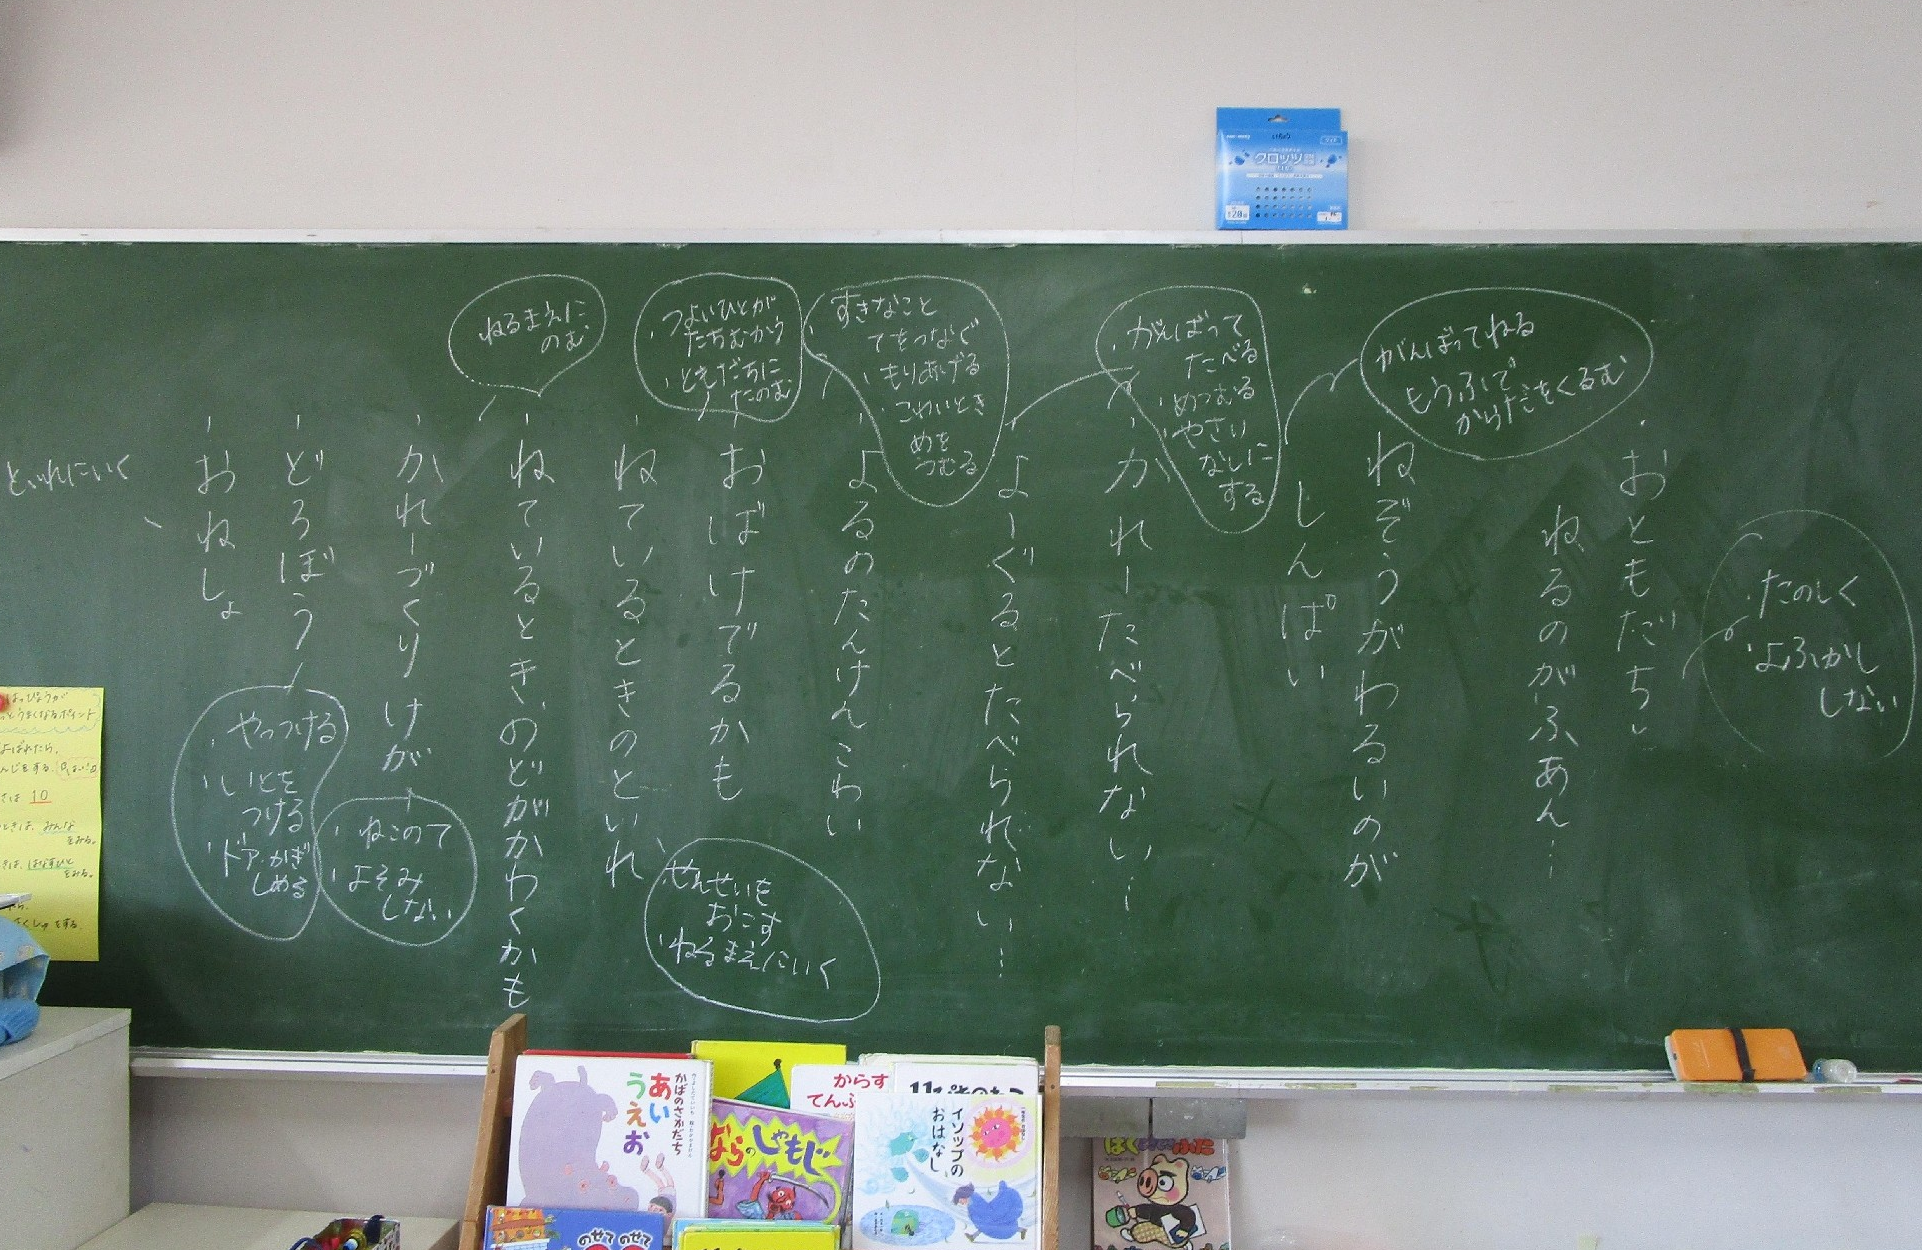 たのしく
よふかし
しない
おともだち
ねるのがふあん…
がんばってねる
もうふで
からだをくるむ
ねぞうがわるいのが
しんぱい
がんばって
たべる
めつむる
やさい
なしに
する
かれーたべられない…
よーぐるとたべられない…
すきなこと
てをつなぐ
もりあげる
こわいとき
めを
つむる
よるのたんけんこわい
つよいひとが
たちむかう
ともだちに
たのむ
おばけでるかも
ねているときのといれ
せんせいを
おこす
ねるまえにいく
ねるまえに
のむ
ねているときのどがかわくかも
かれーづくりけが
ねこのて
よそみ
しない
どろぼう
やっつける
いとを
つける
ドア・かぎ
しめる
おねしょ
といれにいく
はっぴょうが
うまくなるポイント
よばれたら、
10
みんな
をみる。
はなすひと
をみる。
をする
クロッツ
128
かばのさかだち
あいうえお
からす
てんぷ
ならのしゃもじ
11ぴきのねこ
イソップの
おはなし
のせてのせて